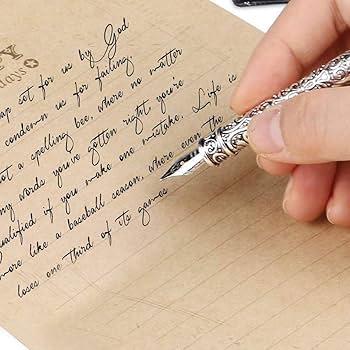 Y
days
ap set for us by God
condemn us for failing.
ot a spelling bee, where no matter
my words you've gotten right you're
qualified if you make one mistake. Life is
more like a baseball season, where even the
loses one third of its games